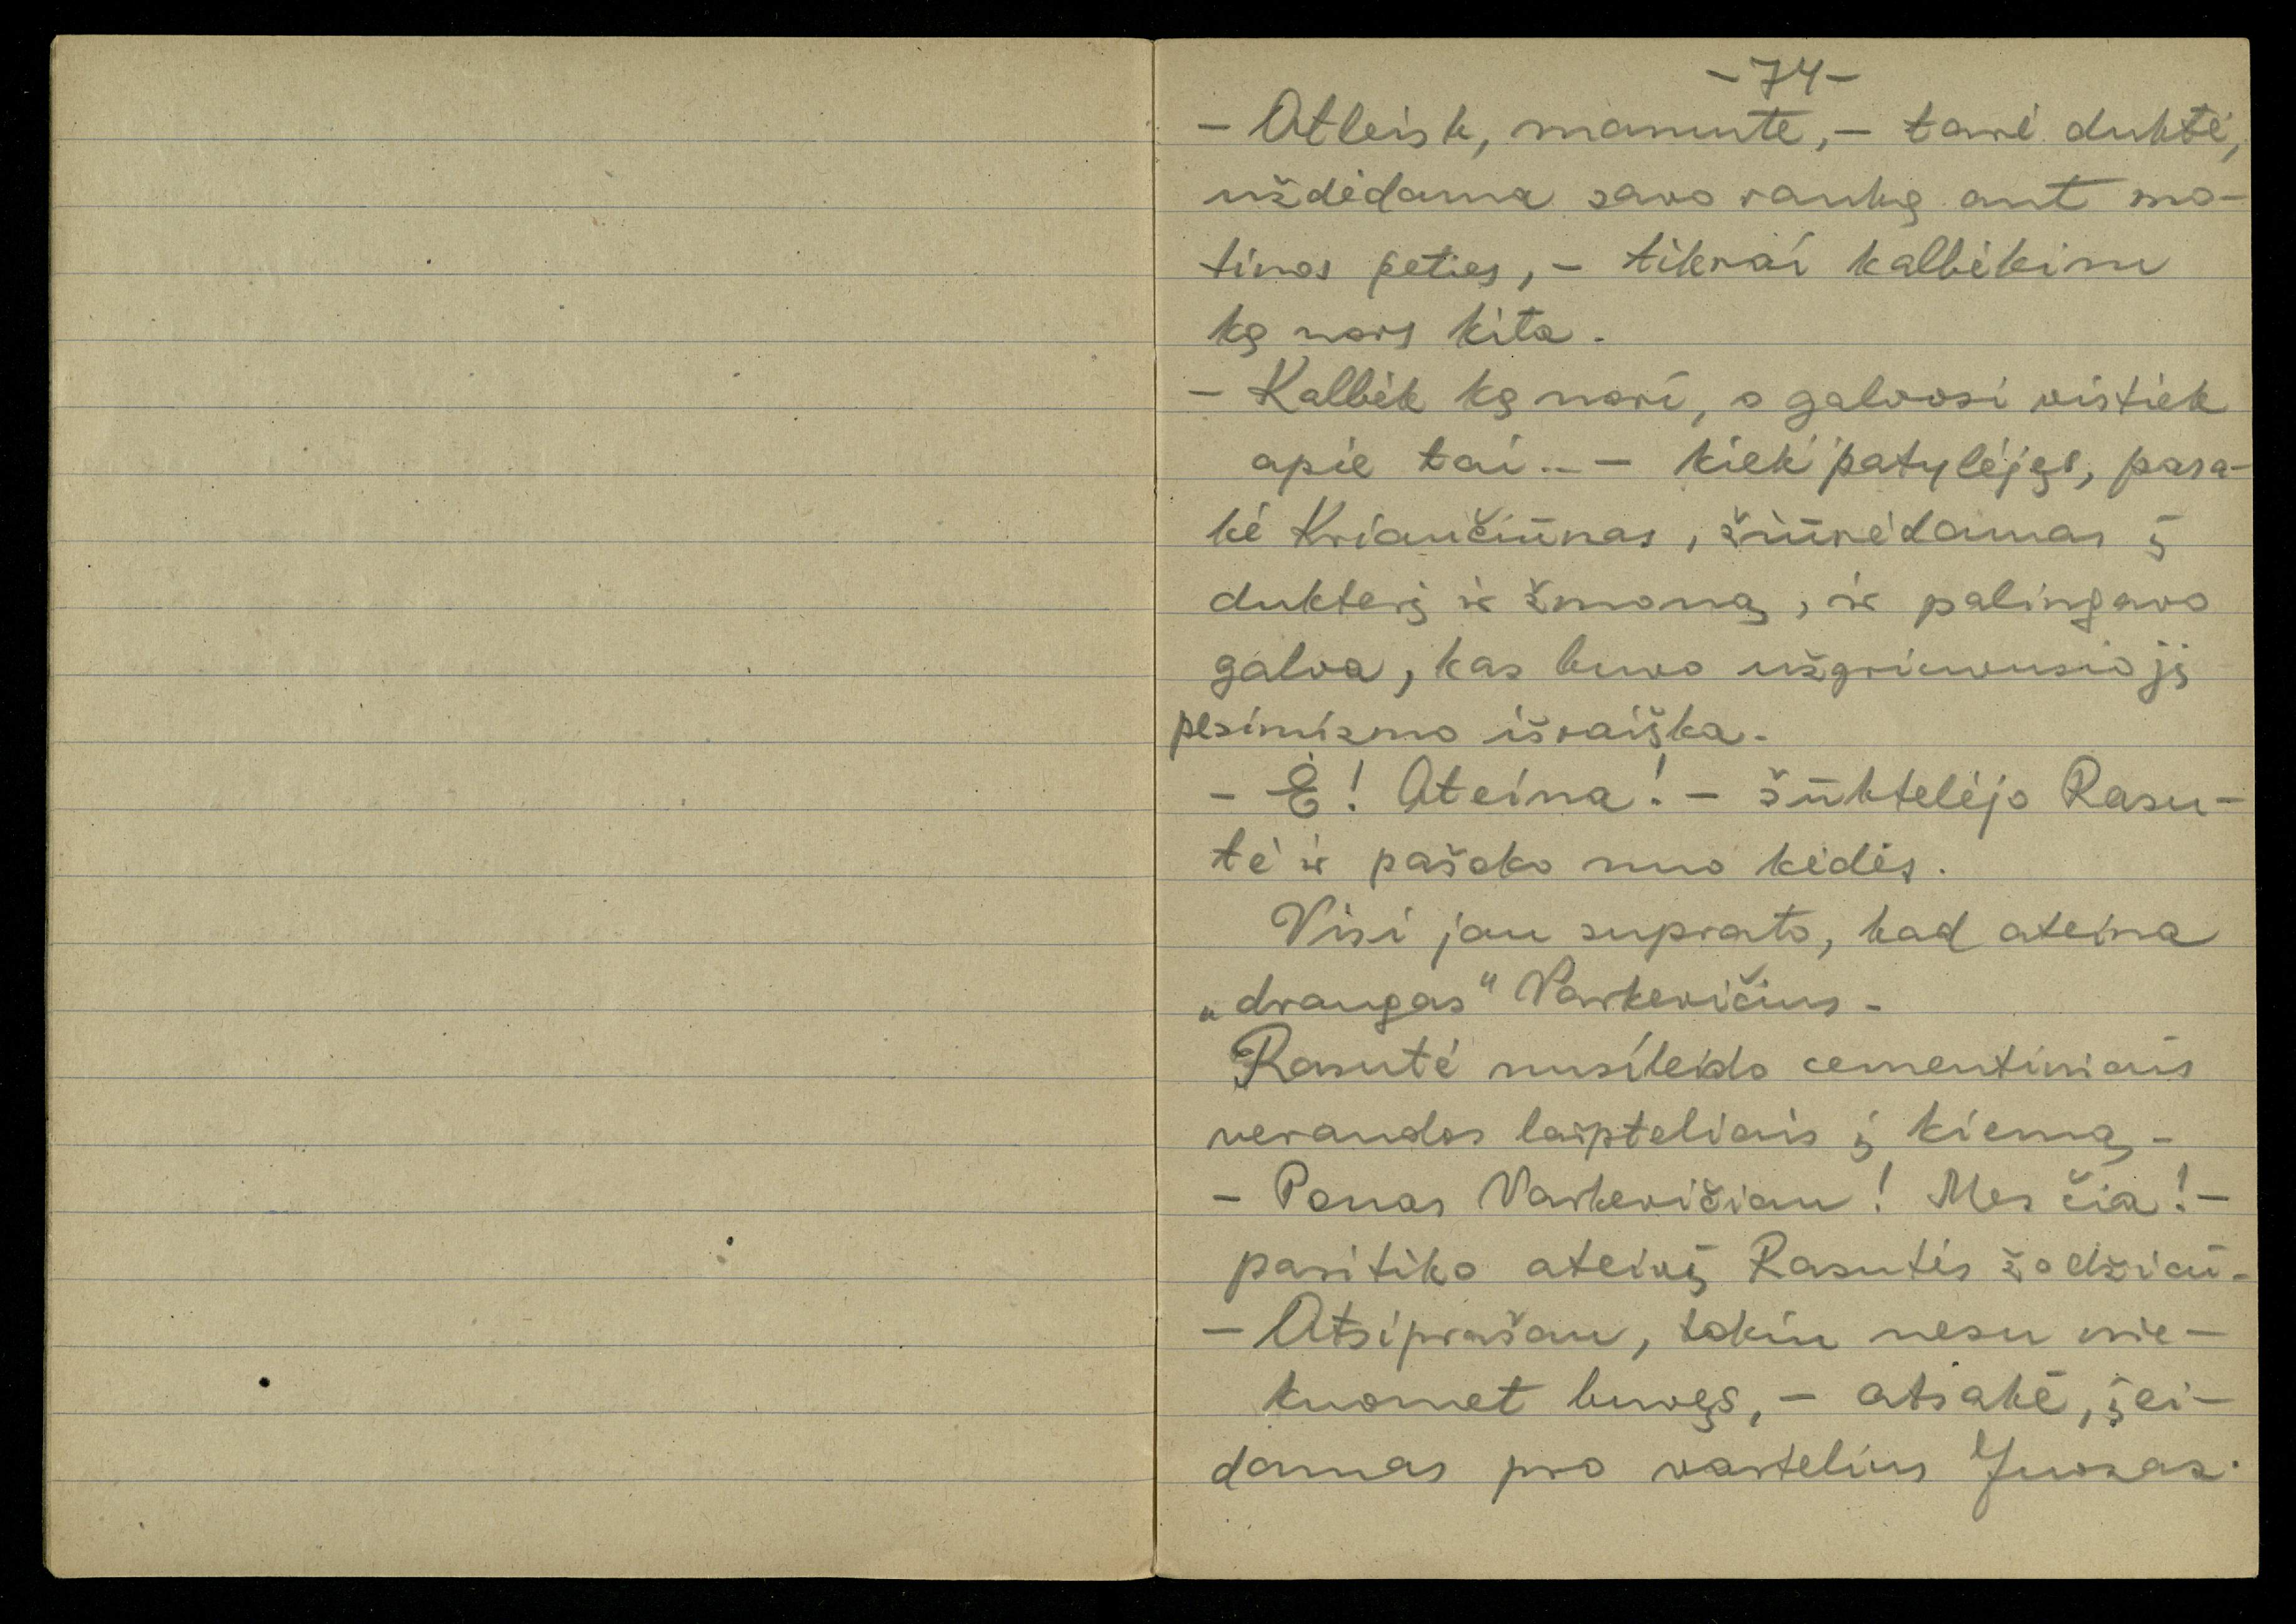 -74-
- Atleisk, mamute, - tarė duktė,
uždėdama savo ranką ant mo-
tinos peties, - tikrai kalbėkim
ką nors kita.
- Kalbėk ką nori, o galvosi vistiek
apie tai... - kiek patylėjęs, pasa-
kė Kriaučiūnas, žiūrėdamas į
dukterį ir žmoną, ir palingavo
galva, kas buvo užgriuvusio jį
pesimizmo išraiška.
- Ė! Ateina! - šūktelėjo Rasu-
tė ir pašoko nuo kėdės.
Visi jau suprato, kad ateina
„draugas" Varkevičius.
Rasutė nusileido cementiniais
verandos laipteliais į kiemą.
- Ponas Varkevičiau! Mes čia! -
pasitiko ateivį Rasutės žodžiai.
- Atsiprašau, tokiu nesu nie-
kuomet buvęs, - atsakė, įei-
damas pro vartelius Juozas.